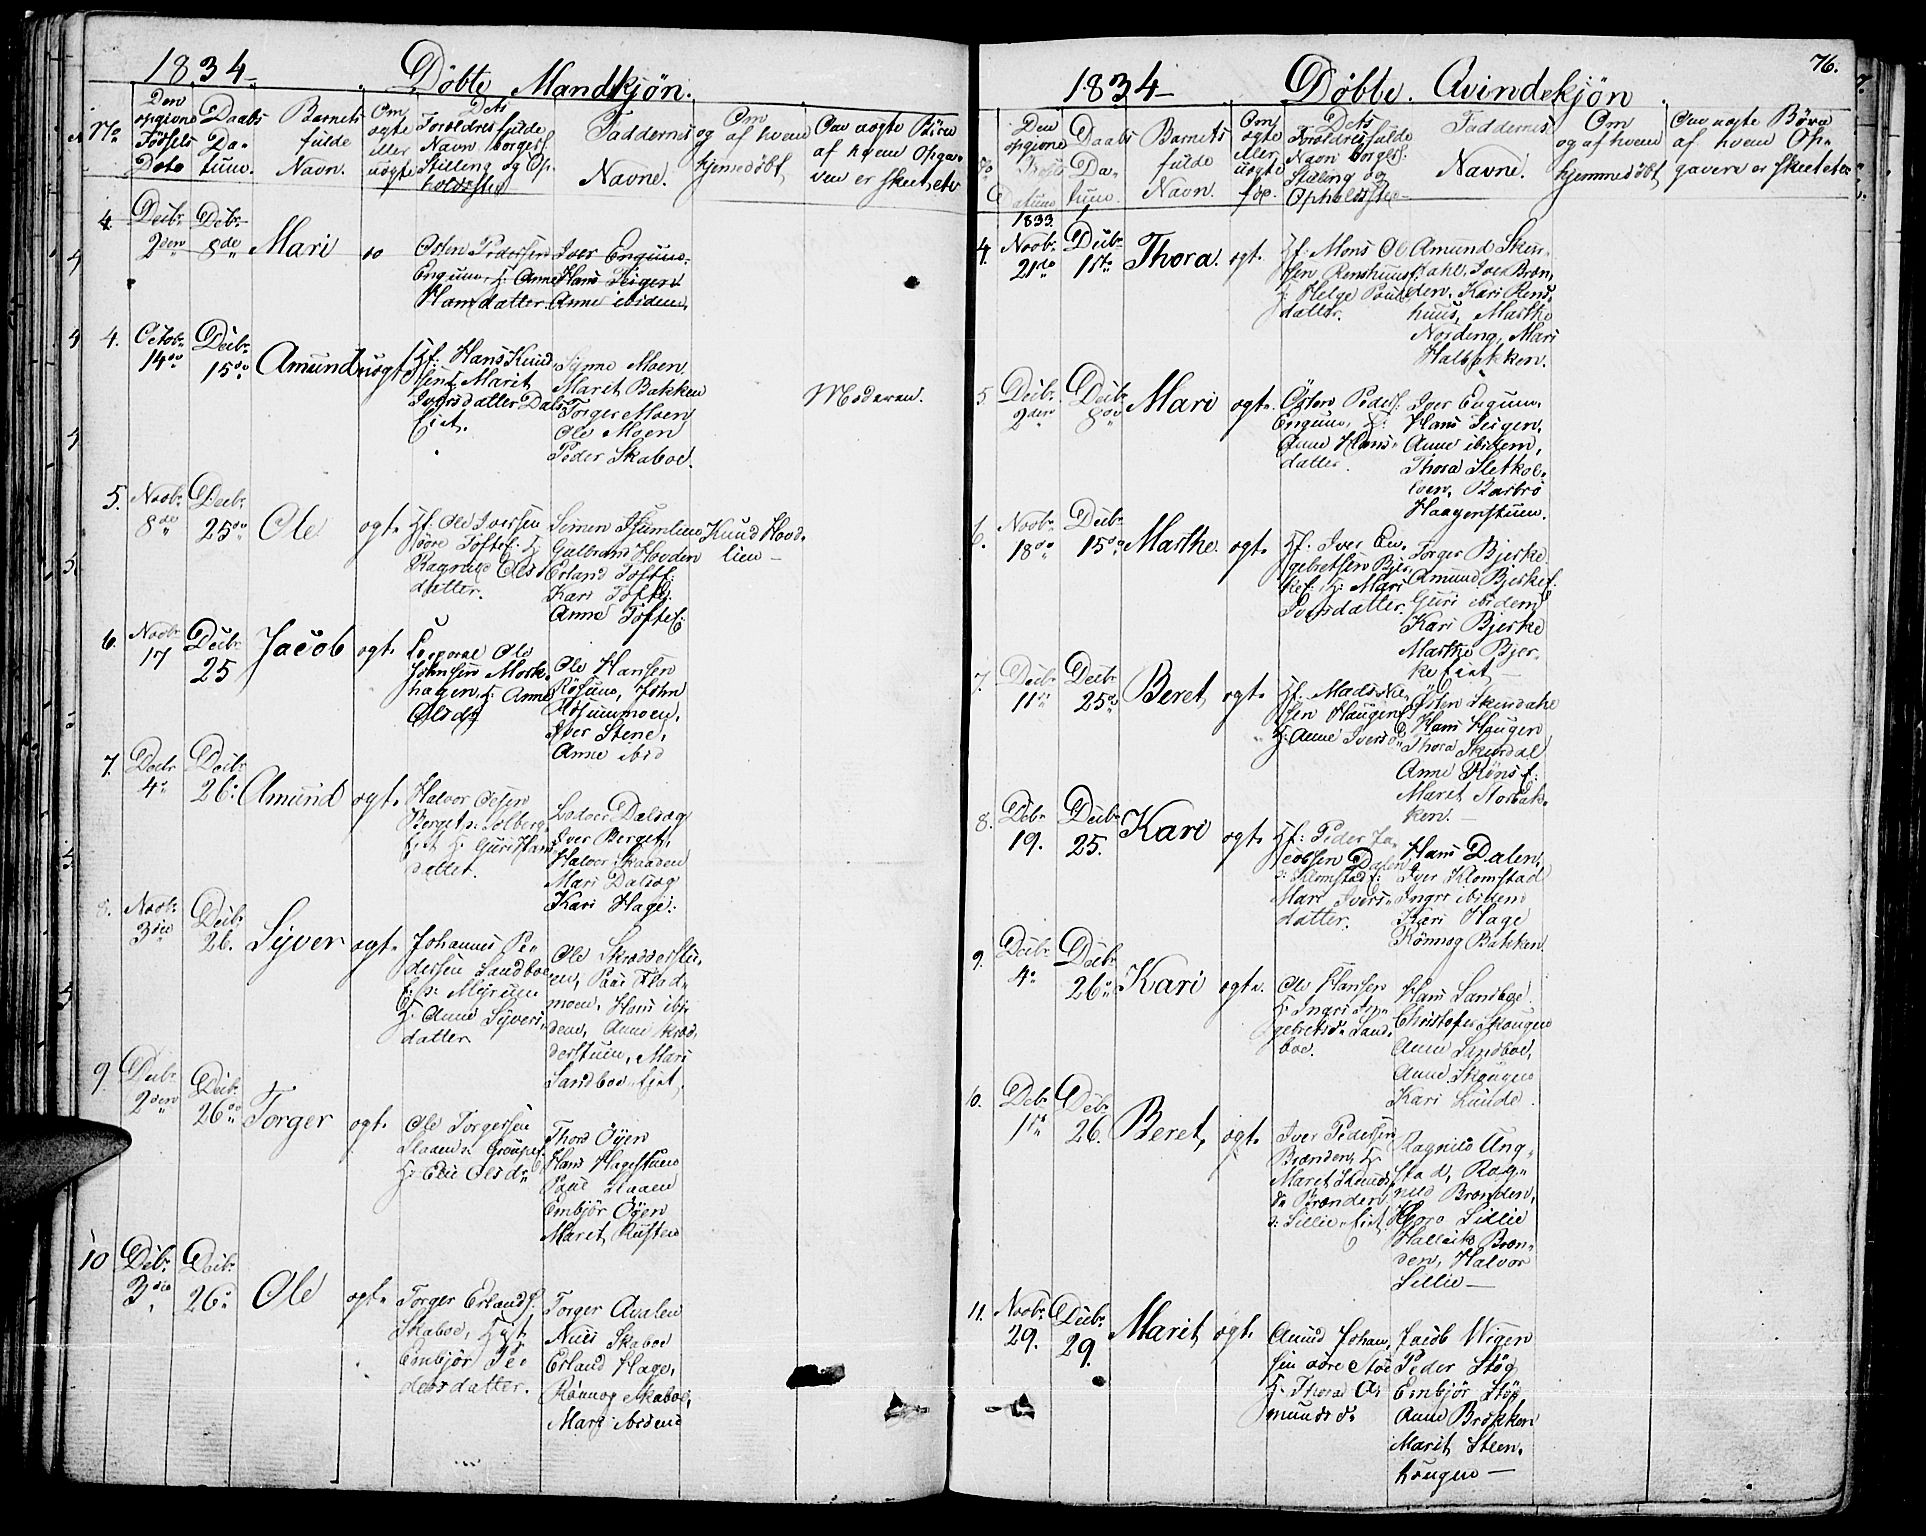 1834
Döbte Mandkjön.
No
Den opgivne Födsels Dato
Daabs Datum.
Barnets fulde Navn.
Om ægte eller uægte
Dets Forældres fulde Navn borgerl. Stilling og Opholdssted
Faddernes Navne.
Om og af hvem hjemmedöbt
Om uægte Börn af hvem Opgaven er skeet etc
4. Decbr. 2den
Decbr. 8de
Mari
Osten Pedersen
Engum, H: Anne
Hansdatter.
Iver Engum.
Hans Seigen
Anne ibidem.
4. Octobr. 14de
Decbr. 15de
Amund
uægte
Hans Knud
sen, Marit
Iversdatter Dals
Eiet.
Synne Moen
Marit Bakken
Torger Moen
Ole Moen
Peder Skaboe.
Moderen.
5. Novbr. 8de
Decbr. 25de
Ole
ægte
Hf: Ole Iversen
Ragnild Ols
datter.
Simen Humlien
Gulbrand Hovden
Erland Tofte
Kari Tofte
Anne Tofte
Knud Hovd.
lien
6. Novbr. 17
Decbr. 25
Jacob
ægte
Corporal Ole
Johnsen Mork
hagen, H: Anne
Olsd.
Ole Hansen
Rösum, John
Rösummoen,
Iver Stene,
Anne ibid
7. Decbr. 4
Decbr. 26
Amund
ægte
Halvor Olsen
Berget n: Solberg
Eiet H: Guri Hans
datter.
Dalsæg
Iver Berget,
Halvor Skaaden
Mari Dalsæg
Kari Hage.
8. Novbr. 3die
Decbr. 26.
Syver
ægte
Johannes Pe
dersen Sandboe
E: n: Myrum
H: Anne Syvers
datter
Ole Skrædderstu
en, Paul Flad
moen, Hans ibi
dem, Anne Skræd
derstuen, Mari
Sandboe Eiet.
9 Decbr. 2den
Decbr. 26de
Torger
ægte
Ole Torgersen
H: Eli Olsd.
Thord Öyen
Hans Hagestuen
Paul Slaaen
Embjör Öyen
Marit Rusten
10 Decbr. 3die
Decbr. 26
Ole
ægte
Torger Erlands.
Skaboe, H:
Embjör Pe
dersdatter.
Torger Qvalen
Niels Skaboe
Erland Hage,
Rönnog Skaboe,
Mari ibidem
76.
1834
Döbte Qvindekjön
Den opgivne Föds. Datum
Daabs Datum.
Barnets fulde Navn.
Om ægte eller uægte
Dets Forældres fulde Navn borgerl. Stilling og Opholdssted
Faddernes Navne.
Om og af hvem hjemmedöbt
Om uægte Börn af hvem Opgaven er skeet etc
1833
4. Novbr. 21de
Decbr. 1ste
Thora.
ægte
Hf: Mons Ol
sen Renshuus
H: Helge Pouls
datter.
Amund Skur
dahl. Iver Bræn
den, Kari Rens
huus, Marthe
Nording, Mari
Halbakken.
5 Decbr. 2den
Decbr. 8de
Mari
ægte
Östen Peders.
Engum, H:
Anne Hans
datter.
Iver Engum.
Hans Seigen.
Anne ibidem,
Thora Sletkol
len, Barbro
Haagenstuen.
6. Novbr. 18de
Decbr. 15de
Marthe
ægte
Hf: Iver En
gebretsen Bjer
ke E: H: Mari
Iversdatter.
Torger Bjerke
Amund Bjerke E.
Guri ibidem
Kari Bjerke
Marthe Bjer
ke Eiet
7. Decbr. 11te
Decbr. 25de
Beret
ægte
Hf: Mads Niel
sen Haugen
H: Anne Iversd.
Östen Skurdahl
Hans Haugen
Thora Skurdal
Anne Röns E:
Marit Storbak
ken.
8. Decbr. 19.
Decbr. 25.
Kari
ægte
Hf: Peder Ja
cobsen Dalen
n: Klomstad E:
Mari Ivers
datter.
Hans Dalen,
Iver Klomstad
Ingri ibidem
Kari Hage
Rönnog Bakken
9. Decbr. 4
Decbr. 26
Kari
ægte
Ole Hansen
H: Ingri In
gebretsd. Sand
boe.
Hans Sandboe
Christofer Skougen
Anne Sandboe,
Anne Skougen
Kari Lunde
10. Decbr. 1ste
Decbr. 26.
Beret,
ægte
Iver Pedersen
Brænden, H:
Marit Knuds
d. Brænden
n: Lillie Eiet
Ragnild Ang
stad, Rag
nild Brænden,
Lillie
Bræn
den, Halvor
Lillie
11. Novbr. 29.
Decbr. 29.
Marit
ægte
Amund Johan
sen övre Stöe
H: Thora A
munds d.
Jacob Wigen
Peder Stög
Embjör Stög
Anne Brækken
Marit Steen
hougen